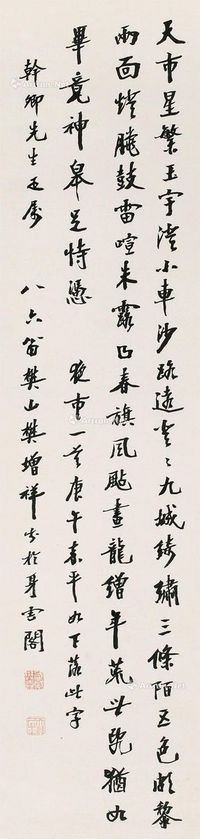 天市星繁玉宇澄小車沙路遠登〻九城綺繡三條陌五色頗黎
兩面燈臘鼓雷喧朱鷺凸春旗風颭畫龍繒年荒世亂猶如
畢竟神皋足恃憑 夜市一首庚午嘉平 如下落此字
幹卿先生正屬 八六翁樊山樊增祥書於身雲閣